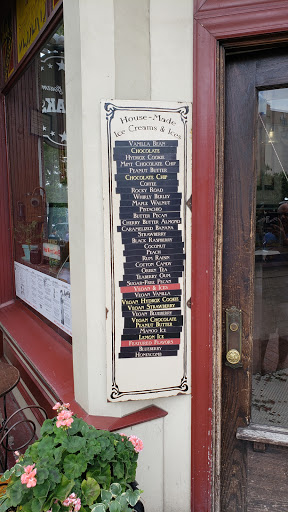 House-Made
Ice Creams & Ices
Vanilla Bean
Chocolate
Hydrox Cookie
Mint Chocolate Chip
Peanut Butter
Chocolate Chip
Coffee
Rocky Road
Whirly Berley
Maple Walnut
Pistachio
Butter Pecan
Cherry Butter Almond
Caramelized Banana
Strawberry
Black Raspberry
Coconut
Peach
Rum Raisin
Cotton Candy
Green Tea
Teaberry Gum
Sugar-Free Pecan
Vegan & Ices
Vegan Vanilla
Vegan Hydrox Cookie
Vegan Strawberry
Vegan Blueberry
Vegan Chocolate
Peanut Butter
Mango Ice
Lemon Ice
Featured Flavors
Blueberry
Honeycomb